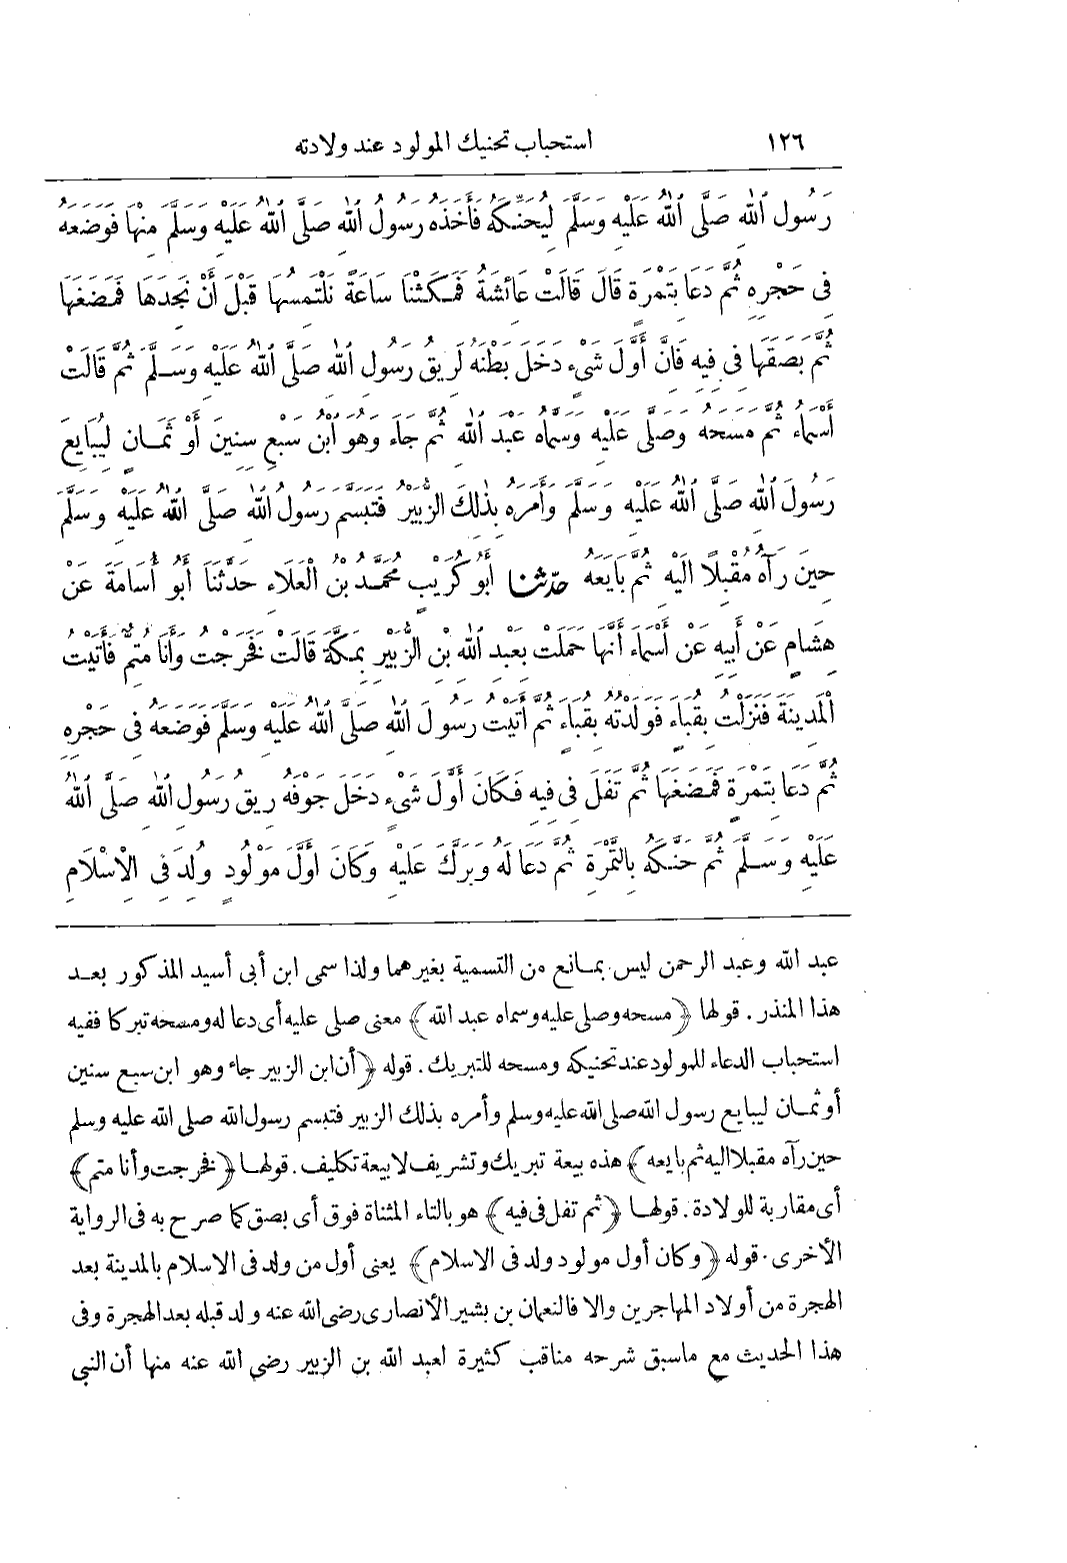 ١٢٦ استحباب تحنيك المولود عند ولادته
رَسُولِ ٱللهِ صَلَّى ٱللهُ عَلَيْهِ وَسَلَّمَ لِيُحَنِّكَهُ فَأَخَذَهُ رَسُولُ ٱللهِ صَلَّى ٱللهُ عَلَيْهِ وَسَلَّمَ مِنْهَا فَوَضَعَهُ
فِى حَجْرِهِ ثُمَّ دَعَا بِتَمْرَةٍ قَالَ قَالَتْ عَائِشَةُ فَمَكَثْنَا سَاعَةً نَلْتَمِسُهَا قَبْلَ أَنْ نَجِدَهَا فَمَضَغَهَا
ثُمَّ بَصَقَهَا فِى فِيهِ فَإِنَّ أَوَّلَ شَىْءٍ دَخَلَ بَطْنَهُ لَرِيقُ رَسُولِ ٱللهِ صَلَّى ٱللهُ عَلَيْهِ وَسَلَّمَ ثُمَّ قَالَتْ
أَسْمَاءُ ثُمَّ مَسَحَهُ وَصَلَّى عَلَيْهِ وَسَمَّاهُ عَبْدَ ٱللهِ ثُمَّ جَاءَ وَهُوَ ٱبْنُ سَبْعِ سِنِينَ أَوْ ثَمَانٍ لِيُبَايِعَ
رَسُولَ ٱللهِ صَلَّى ٱللهُ عَلَيْهِ وَسَلَّمَ وَأَمَرَهُ بِذٰلِكَ الزُّبَيْرُ فَتَبَسَّمَ رَسُولُ ٱللهِ صَلَّى ٱللهُ عَلَيْهِ وَسَلَّمَ
حِينَ رَآهُ مُقْبِلًا إِلَيْهِ ثُمَّ بَايَعَهُ حدّثنا أَبُو كُرَيْبٍ مُحَمَّدُ بْنُ الْعَلَاءِ حَدَّثَنَا أَبُو أُسَامَةَ عَنْ
هِشَامٍ عَنْ أَبِيهِ عَنْ أَسْمَاءَ أَنَّهَا حَمَلَتْ بِعَبْدِ ٱللهِ بْنِ الزُّبَيْرِ بِمَكَّةَ قَالَتْ فَخَرَجْتُ وَأَنَا مُتِمٌّ فَأَتَيْتُ
الْمَدِينَةَ فَنَزَلْتُ بِقُبَاءٍ فَوَلَدْتُهُ بِقُبَاءٍ ثُمَّ أَتَيْتُ رَسُولَ ٱللهِ صَلَّى ٱللهُ عَلَيْهِ وَسَلَّمَ فَوَضَعَهُ فِى حَجْرِهِ
ثُمَّ دَعَا بِتَمْرَةٍ فَمَضَغَهَا ثُمَّ تَفَلَ فِى فِيهِ فَكَانَ أَوَّلَ شَىْءٍ دَخَلَ جَوْفَهُ رِيقُ رَسُولِ ٱللهِ صَلَّى ٱللهُ
عَلَيْهِ وَسَلَّمَ ثُمَّ حَنَّكَهُ بِالتَّمْرَةِ ثُمَّ دَعَا لَهُ وَبَرَّكَ عَلَيْهِ وَكَانَ أَوَّلَ مَوْلُودٍ وُلِدَ فِى الْإِسْلَامِ
عبد الله وعبد الرحمن ليس بمانع من التسمية بغيرهما ولذا سمى ابن أبى أسيد المذكور بعد
هذا المنذر. قولها ﴿مسحه وصلى عليه وسماه عبد الله﴾ معنى صلى عليه أى دعا له ومسحه تبركا ففيه
استحباب الدعاء للمولود عند تحنيكه ومسحه للتبريك. قوله ﴿أن ابن الزبير جاء وهو ابن سبع سنين
أو ثمان ليبايع رسول الله صلى الله عليه وسلم وأمره بذلك الزبير فتبسم رسول الله صلى الله عليه وسلم
حين رآه مقبلا اليه ثم بايعه﴾ هذه بيعة تبريك وتشريف لا بيعة تكليف. قولها ﴿فخرجت وأنا متم﴾
أى مقاربة للولادة. قولها ﴿ثم تفل فى فيه﴾ هو بالتاء المثناة فوق أى بصق كما صرح به فى الرواية
الأخرى. قوله ﴿وكان أول مولود ولد فى الاسلام﴾ يعنى أول من ولد فى الاسلام بالمدينة بعد
الهجرة من أولاد المهاجرين والا فالنعمان بن بشير الأنصارى رضى الله عنه ولد قبله بعد الهجرة وفى
هذا الحديث مع ماسبق شرحه مناقب كثيرة لعبد الله بن الزبير رضى الله عنه منها أن النبى